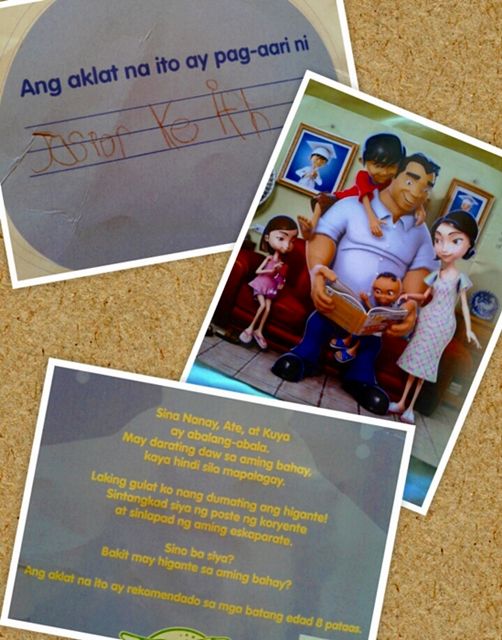 Ang aklat na ito ay pag-aari ni
Keith
Sina Nanay, Ate, at Kuya
ay abalang-abala.
May darating daw sa aming bahay,
kaya hindi sila mapalagay.
Laking gulat ko nang dumating ang higante!
Sintangkad siya ng poste ng koryente
at sinlapad ng aming eskaparate.
Sino ba siya?
Bakit may higante sa aming bahay?
Ang aklat na ito ay rekomendado sa mga batang edad 8 pataas.